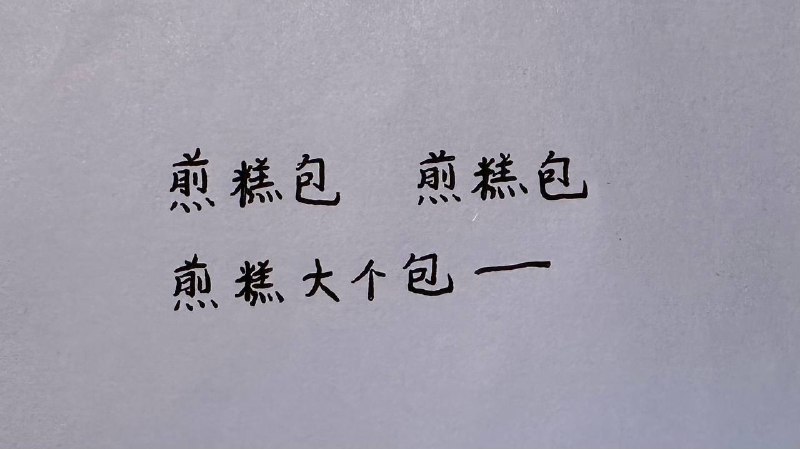 煎糕包 煎糕包
煎糕大个包一